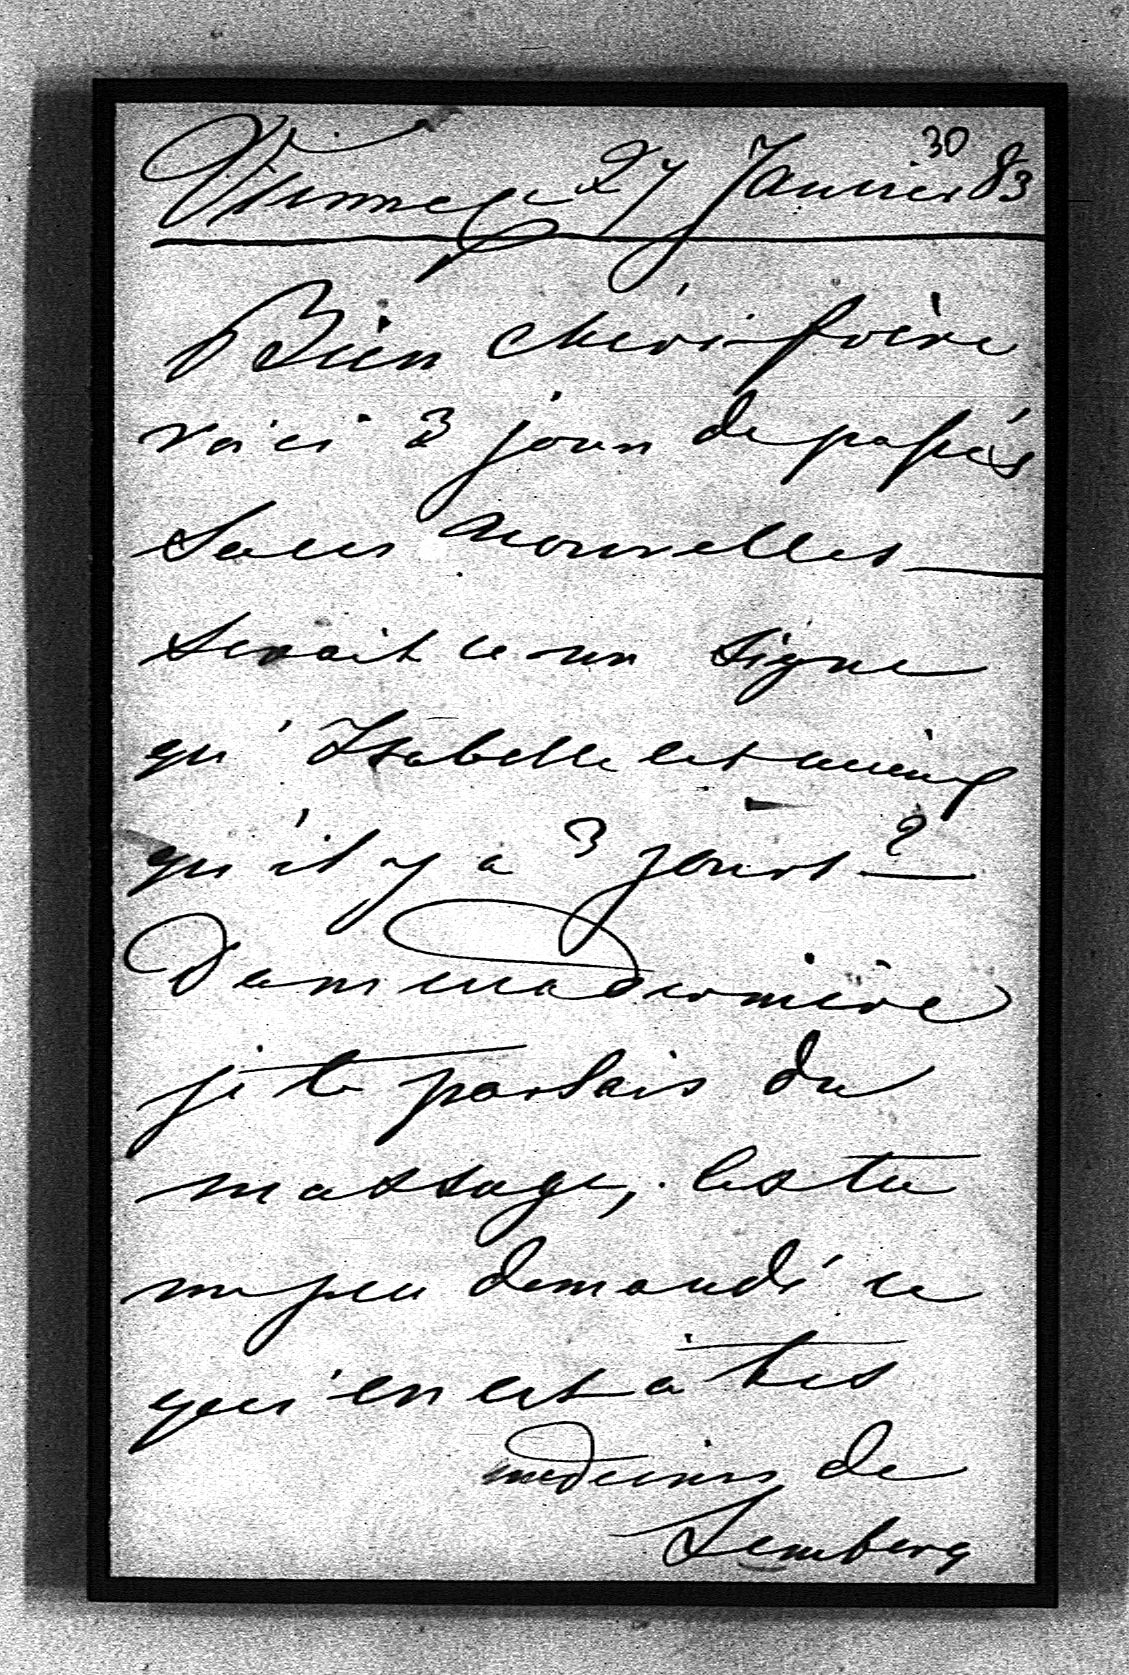 30
Vienne 27 Janvier 83
Bien chéri frère
voici 3 jours de passés
sans nouvelles —
serait ce un signe
qu'Isabelle est mieux
qu'il y a 3 jours? —
Dans ma dernière
je te parlais du
massage, as tu
un peu demandé ce
qui en est à tes
medecins de
Lemberg